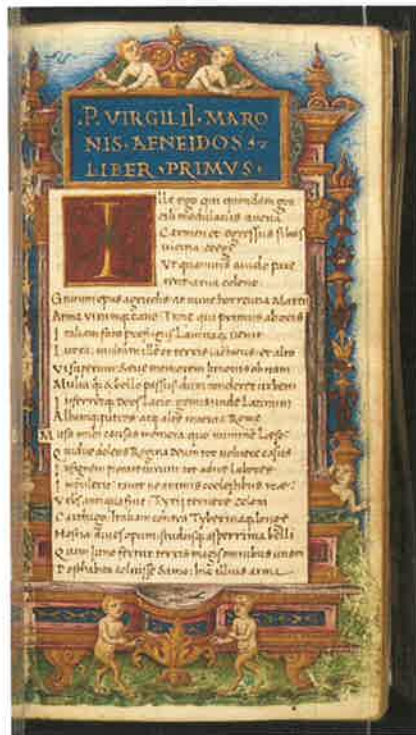 .P. VIRGILII. MARO
NIS. AENEIDOS
LIBER. PRIMVS.
Ille ego qui quondam gra
cili modulatus auena
Carmen et egressus siluis
uicina coegi
Vt quamuis auido pare
rent arua colono
Gratum opus agricolis at nunc horrentia Martis
Arma uirumque cano Troie qui primus ab oris
Italiam fato profugus Lauinaque uenit
Litora multum ille et terris iactatus et alto
Vi superum Seue memorem Iunonis ob iram
Multa q; & bello passus dum conderet urbem
Inferretque Deos Latio genus unde Latinum
Albanique patres atque alte moenia Rome
Musa mihi causas memora quo numine Leso
Quidue dolens Regina Deum tot uoluere casus
Insignem pietate uirum tot adire labores
Impulerit tante ne animis coelestibus irae
Vrbs antiqua fuit Tyrii tenuere coloni
Carthago Italiam contra Tyberinaque longe
Hostia diues opum studiisque asperrima belli
Quam Iuno fertur terris magis omnibus unam
Posthabita coluisse Samo hic illius arma